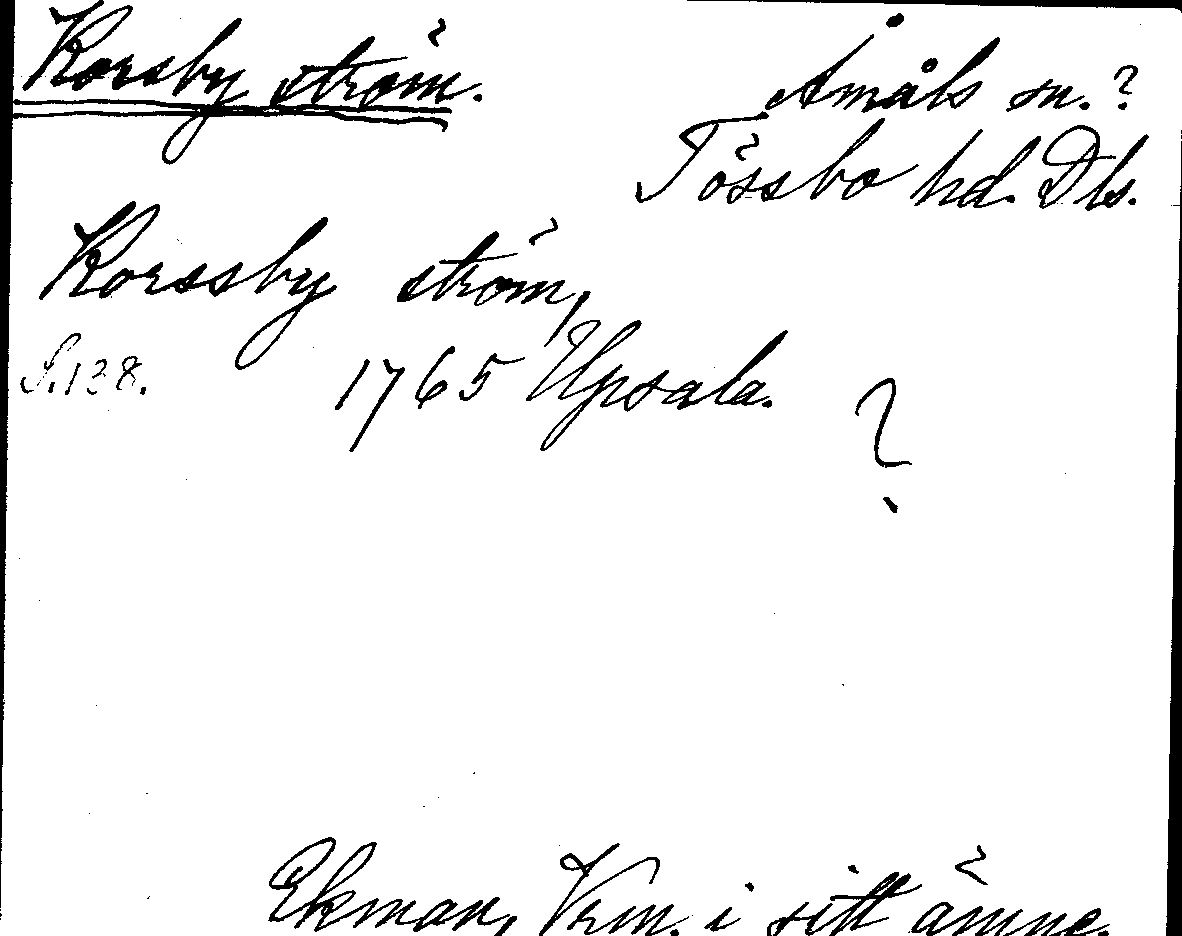 Korsby ström.
Åmåls sn.?
Tössbo hd. Dls.
Korssby ström,
S. 138.
1765 Upsala.
?
Ekman, Vrm. i sitt ämne.